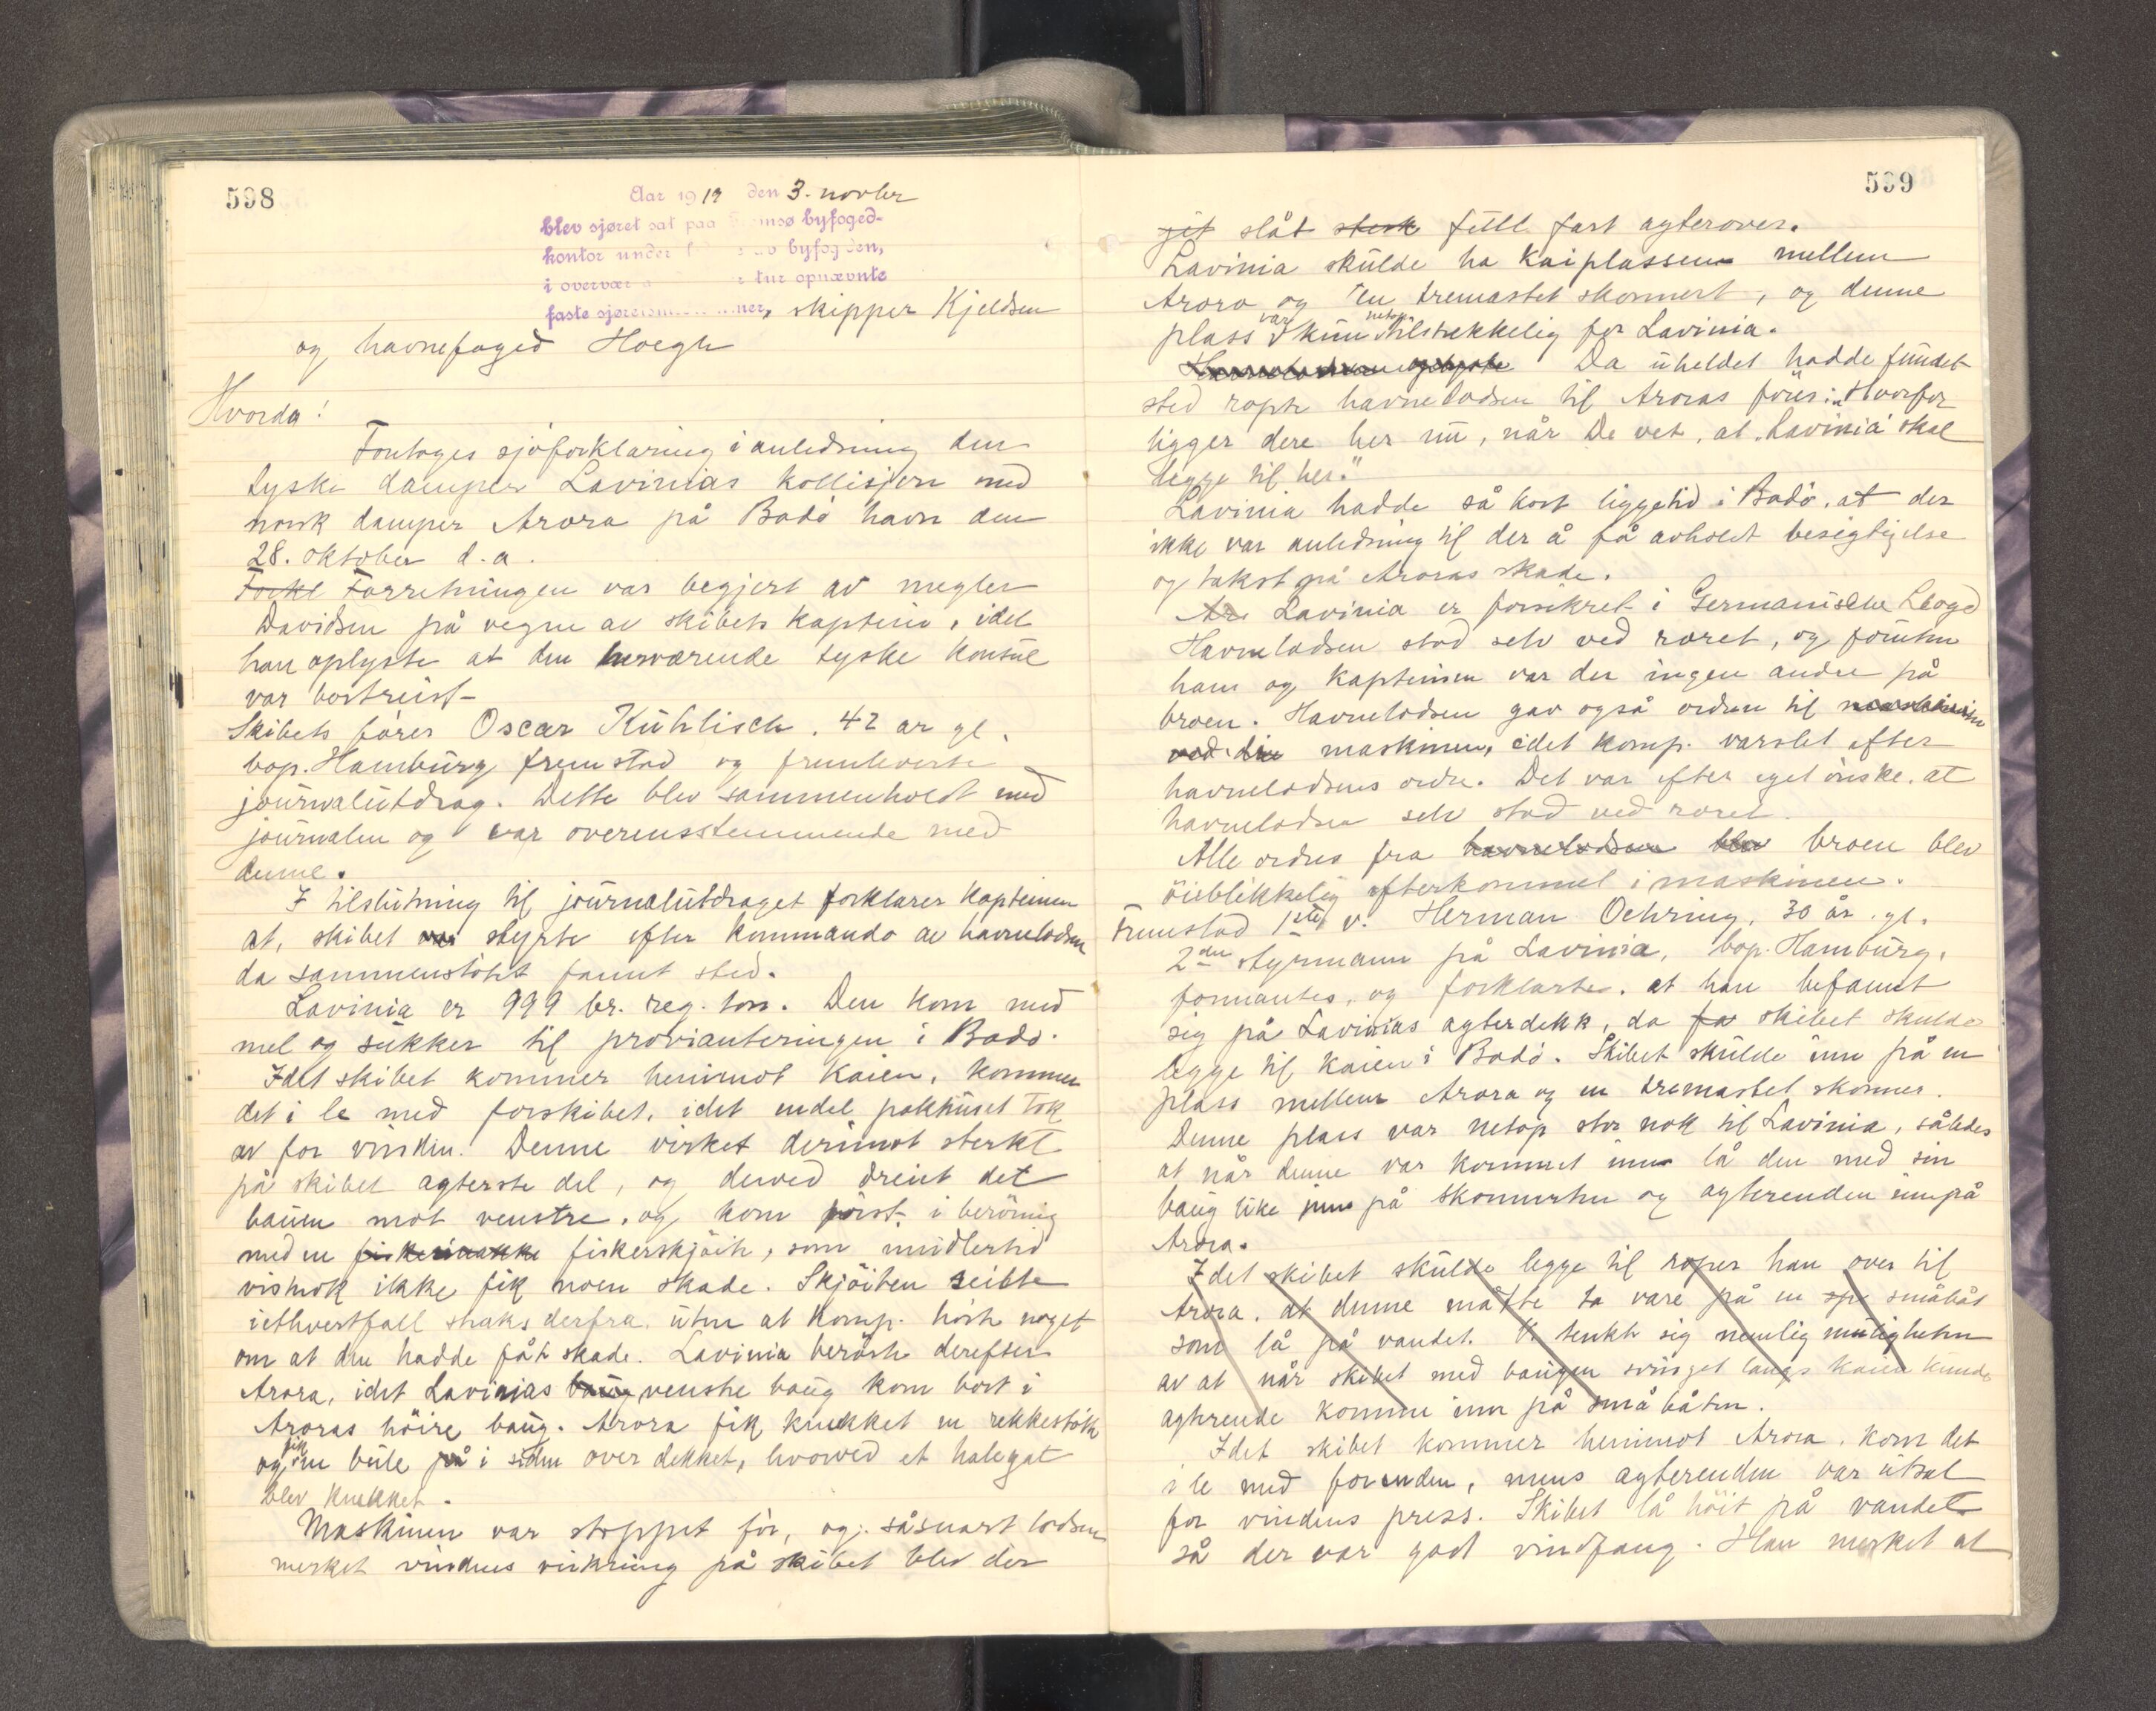 598
Aar 1919 den 3. novbr
blev sjøret sat paa Tromsø byfoged-
kontor under byfogden,
i overvær tur opnævnte
faste sjøretsmænner, skipper Kjeldsen
og havnefoged Hoegh
Hvorda!
Foretoges sjøforklaring i anledning den
tyske damper Lavinias kollisjon med
norsk damper Arora på Bodö havn den
28. oktober d.a.
Forkl Forretningen var begjert av megler
Davidsen på vegne av skibets kaptein, idet
han oplyste at den herværende tyske konsul
var bortreist-
Skibets förer Oscar Kühlisch. 42 ar gl.
bop. Hamburg fremstod og fremleverte
journalutdrag. Dette blev sammenholdt med
journalen og var overensstemmende med
denne.
I tilslutning til journalutdraget forklarer kapteinen
at, skibet var styrte efter kommando av havnelodsen
da sammenstötet fannt sted.
Lavinia er 999 br. reg. ton. Den kom med
mel og sukker til provianteringen i Bodö.
Idet skibet kommer henimot kaien, kommer
det i le med forskibet, idet endel pakhuset tok
av for vinden. Denne virket derimot sterkt
på skibet agterste del, og derved dreiet det
bauen mot venstre, og kom först i beröring
med en fiskerinakke fiskerskjöite, som imidlertid
visnok ikke fik noen skade. Skjöiten seilte
iethvertfall straks derfra, uten at komp. hörte noget
om at den hadde fåt skade. Lavinia berörte derefter
Arora, idet Lavinias baug venstre baug kom bort i
Aroras höire baug. Arora fik knekket en rekkestötte
og fik en bule på i siden over dekket, hvorved et halegat
blev knekket.
Maskinen var stoppet för, og såsnart lodsen
merket vindens virkning på skibet blev der
599
git slåt sterk full fart agterover.
Lavinia skulde ha kaiplassen mellem
Arora og en tremastet skonnert, og denne
plass var kun netop tilstrekkelig for Lavinia.
Da uheldet hadde fundet
sted ropte havnelodsen til Aroras förer: "Hvorfor
ligger dere her nu, når De vet, at "Lavinia" skal
legge til her."
Lavinia hadde så kort liggetid i Bodö, at der
ikke var anledning til der å få avholdt besigtigelse
og takst på Aroras skade.
Aro Lavinia er forsikret i Germanische Lloyd
Havnelodsen stod selv ved roret, og foruten
ham og kapteinen var der ingen andre på
broen. Havnelodsen gav også ordren til maskinen
ved tre maskinen, idet komp. varslet efter
havnelodsens ordre. Det var efter eget önske, at
havnelodsen selv stod ved roret.
Alle ordres fra havnelodsen blev broen blev
öieblikkelig efterkommet i maskinen.
Fremstod 1ste v. Herman Oehring, 30 år gl.
2den styrmann på Lavinia, bop. Hamburg,
formantes, og forklarte, at han befannt
sig på Lavinias agterdekk, da fa skibet skulde
legge til kaien i Bodö. Skibet skulde inn på en
plass mellem Arora og en tremastet skonner.
Denne plass var netop stor nok til Lavinia, således
at når denne var kommet inn lå den med sin
baug like inn på skonnerten og agterenden innpå
Arora.
Idet skibet skulde legge til roper han over til
Arora, at denne måtte ta vare på en spe småbåt
som lå på vandet. Vi tenkte sig nemlig muligheten
av at når skibet med baugen svinget langs kaien kunde
agterende komme inn på småbåten.
Idet skibet kommer henimot Arora, kom det
i le med forenden, mens agterenden var utsat
for vindens press. Skibet lå höit på vandet
så der var god vindfang. Han merket at